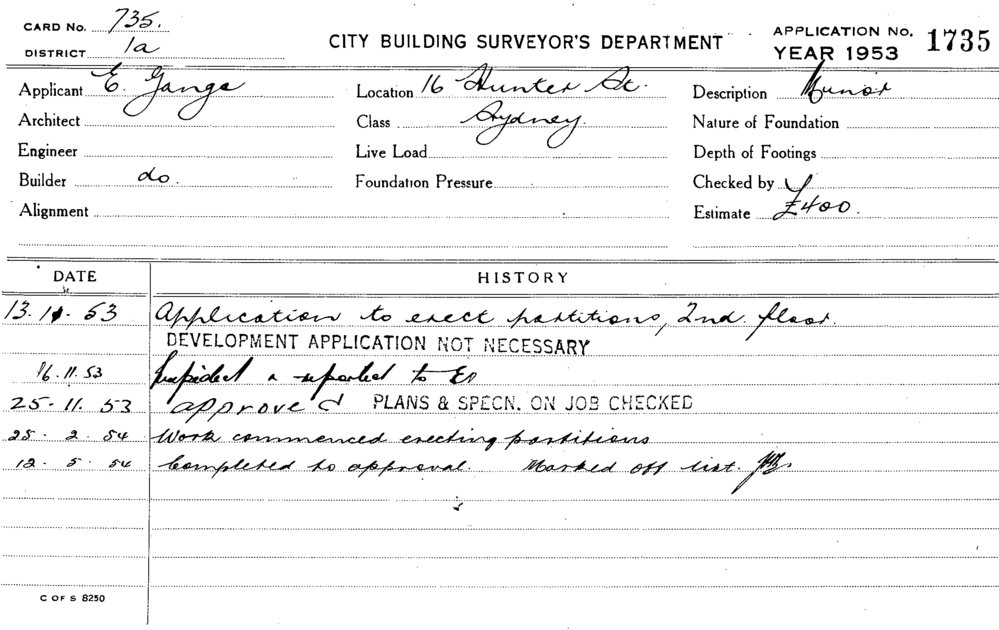 CARD No. 735.
DISTRICT 1a
CITY BUILDING SURVEYOR'S DEPARTMENT
APPLICATION No. 1735
YEAR 1953
Applicant E. Gangs
Location 16 Hunter St.
Description Minor
Architect
Class Sydney.
Nature of Foundation
Engineer
Live Load
Depth of Footings
Builder do.
Foundation Pressure
Checked by
Alignment
Estimate £400.
DATE HISTORY
13.11.53 Application to erect partitions, 2nd. floor.
DEVELOPMENT APPLICATION NOT NECESSARY
16.11.53 Inspected & reported to
25.11.53 approved PLANS & SPECN. ON JOB CHECKED
25.2.54 Work commenced erecting partitions
12.5.54 Completed to approval. Marked off list.
C OF S 8250